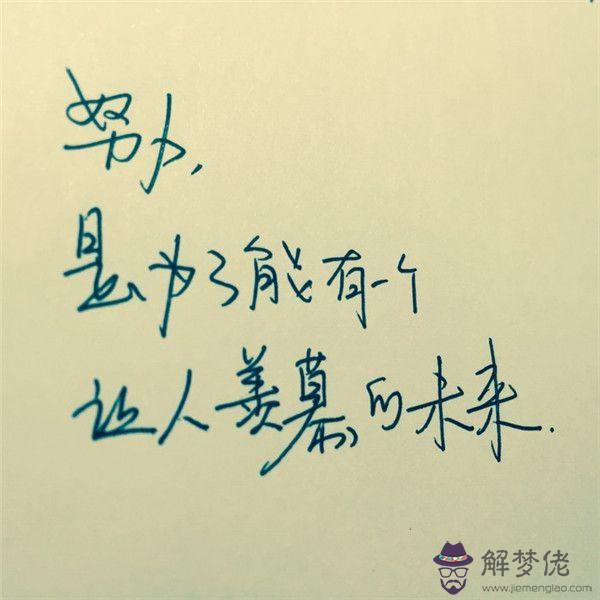 努力,
是为了能有一个
让人羡慕的未来.
解梦佬
www.jiemenglao.com